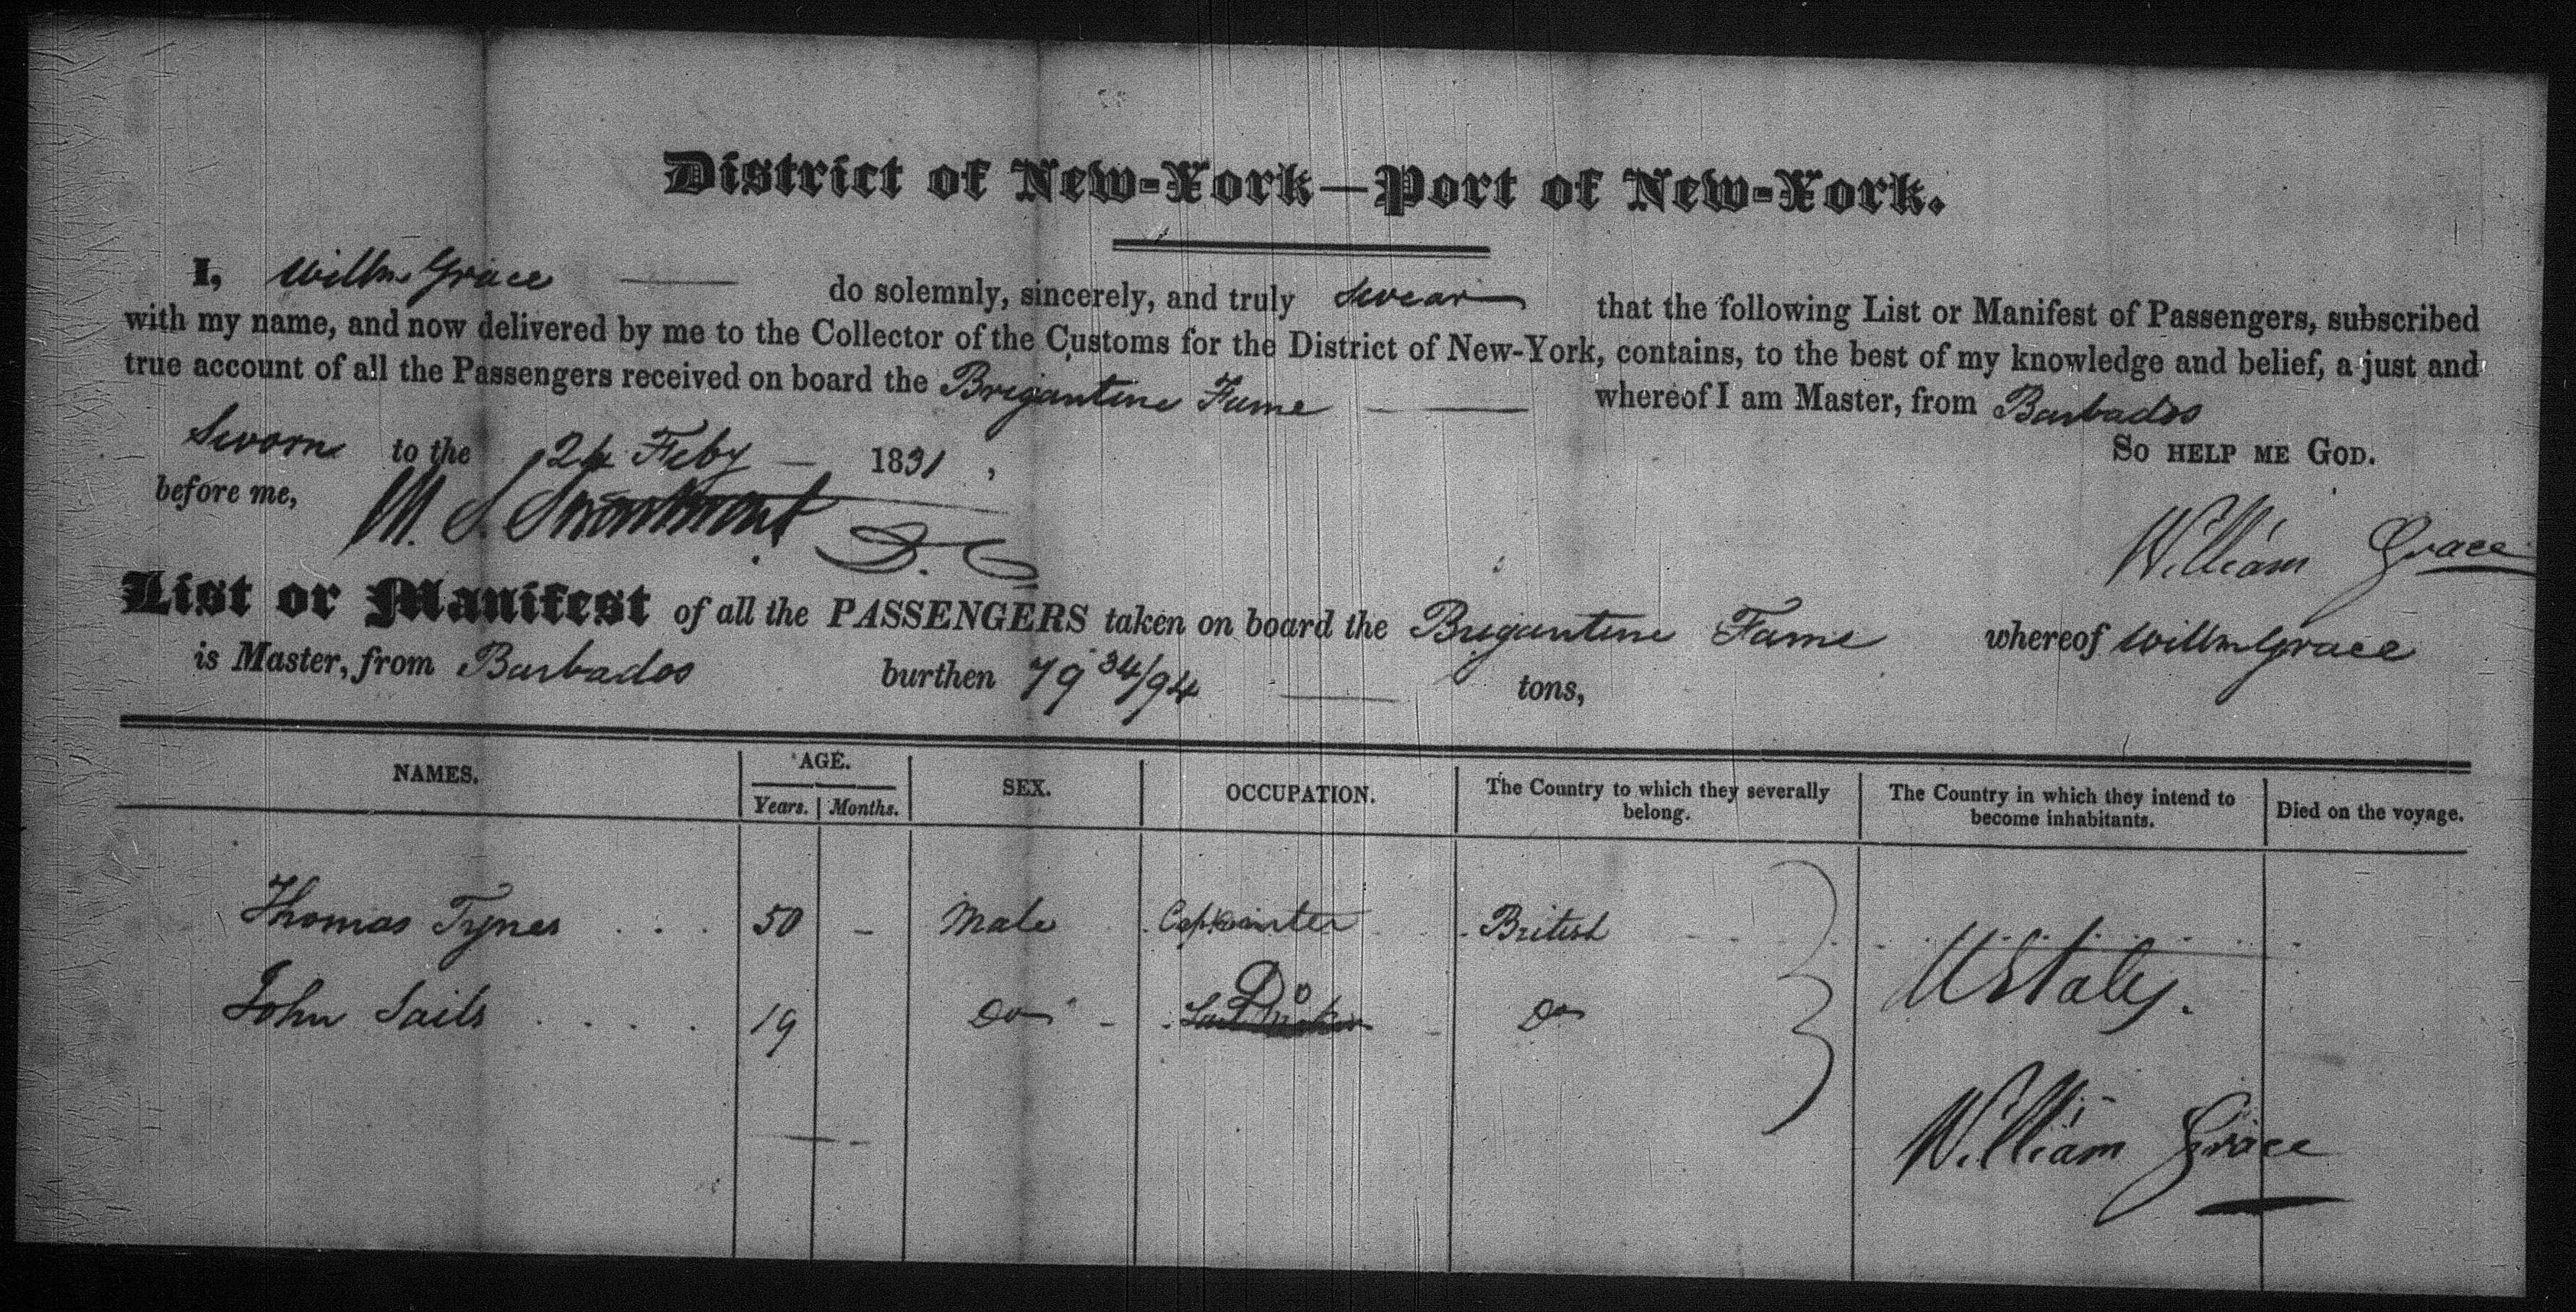 District of New-York—Port of New-York.
I, Willm Grace do solemnly, sincerely, and truly swear that the following List or Manifest of Passengers, subscribed
with my name, and now delivered by me to the Collector of the Customs for the District of New-York, contains, to the best of my knowledge and belief, a just and
true account of all the Passengers received on board the Brigantine Fame whereof I am Master, from Barbados
Sworn to the 24 Feby 1831, So help me God.
before me, M. S. D. C.
William Grace
List or Manifest of all the PASSENGERS taken on board the Brigantine Fame whereof Willm Grace
is Master, from Barbados burthen 79 34/94 tons,
NAMES. AGE. Years. Months. SEX. OCCUPATION. The Country to which they severally belong. The Country in which they intend to become inhabitants. Died on the voyage.
Thomas Tynes 50 - Male British
John Sails 19 Do Do Do
U States.
William Grace